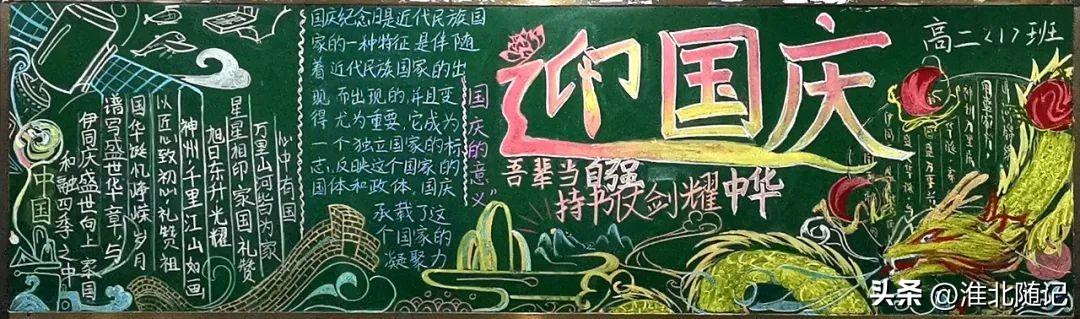 心中有国
万里山河皆为家
星星相印家国礼赞
旭日东升光耀
神州千里江山如画
以匠心致初心礼赞祖
国华诞忆峥嵘岁月
谱写盛世华章与
伊同庆盛世向上家国
和融四季之中
中国
国庆纪念日是近代民族国
家的一种特征是伴随
着近代民族国家的出
现而出现的,并且变
得尤为重要,它成为
一个独立国家的标
志,反映这个国家的
国体和政体,国庆
承载了这
个国家的
凝聚力
国庆的意义
迎国庆
吾辈当自强
持书仗剑耀中华
高二<1>班
头条 @淮北随记